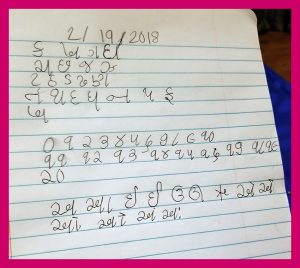 2/19/2018
ક ખ ગ ઘ
ચ છ જ ઝ
ટ ઠ ડ ઢ ણ
ત થ દ ધ ન પ ફ
બ
૦ ૧ ૨ ૩ ૪ ૫ ૬ ૭ ૮ ૯ ૧૦
૧૧ ૧૨ ૧૩ ૧૪ ૧૫ ૧૬ ૧૭ ૧૮ ૧૯
૨૦
અ આ ઈ ઉ ઊ ઋ એ ઐ
ઓ ઔ અં અઃ